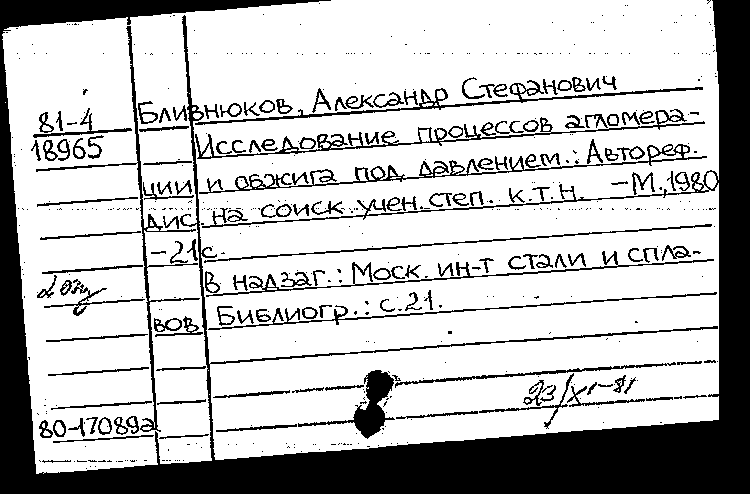 81-4
18965
Бливнюков, Александр Стефанович
Исследование процессов агломера-
ции и обжига под давлением.: Автореф.
дис. на соиск. учен. степ. к.т.н. -М., 1980
-21с.
В надзаг.: Моск. ин-т стали и спла-
вов Библиогр.: с.21.
23/XI-81
80-17089а